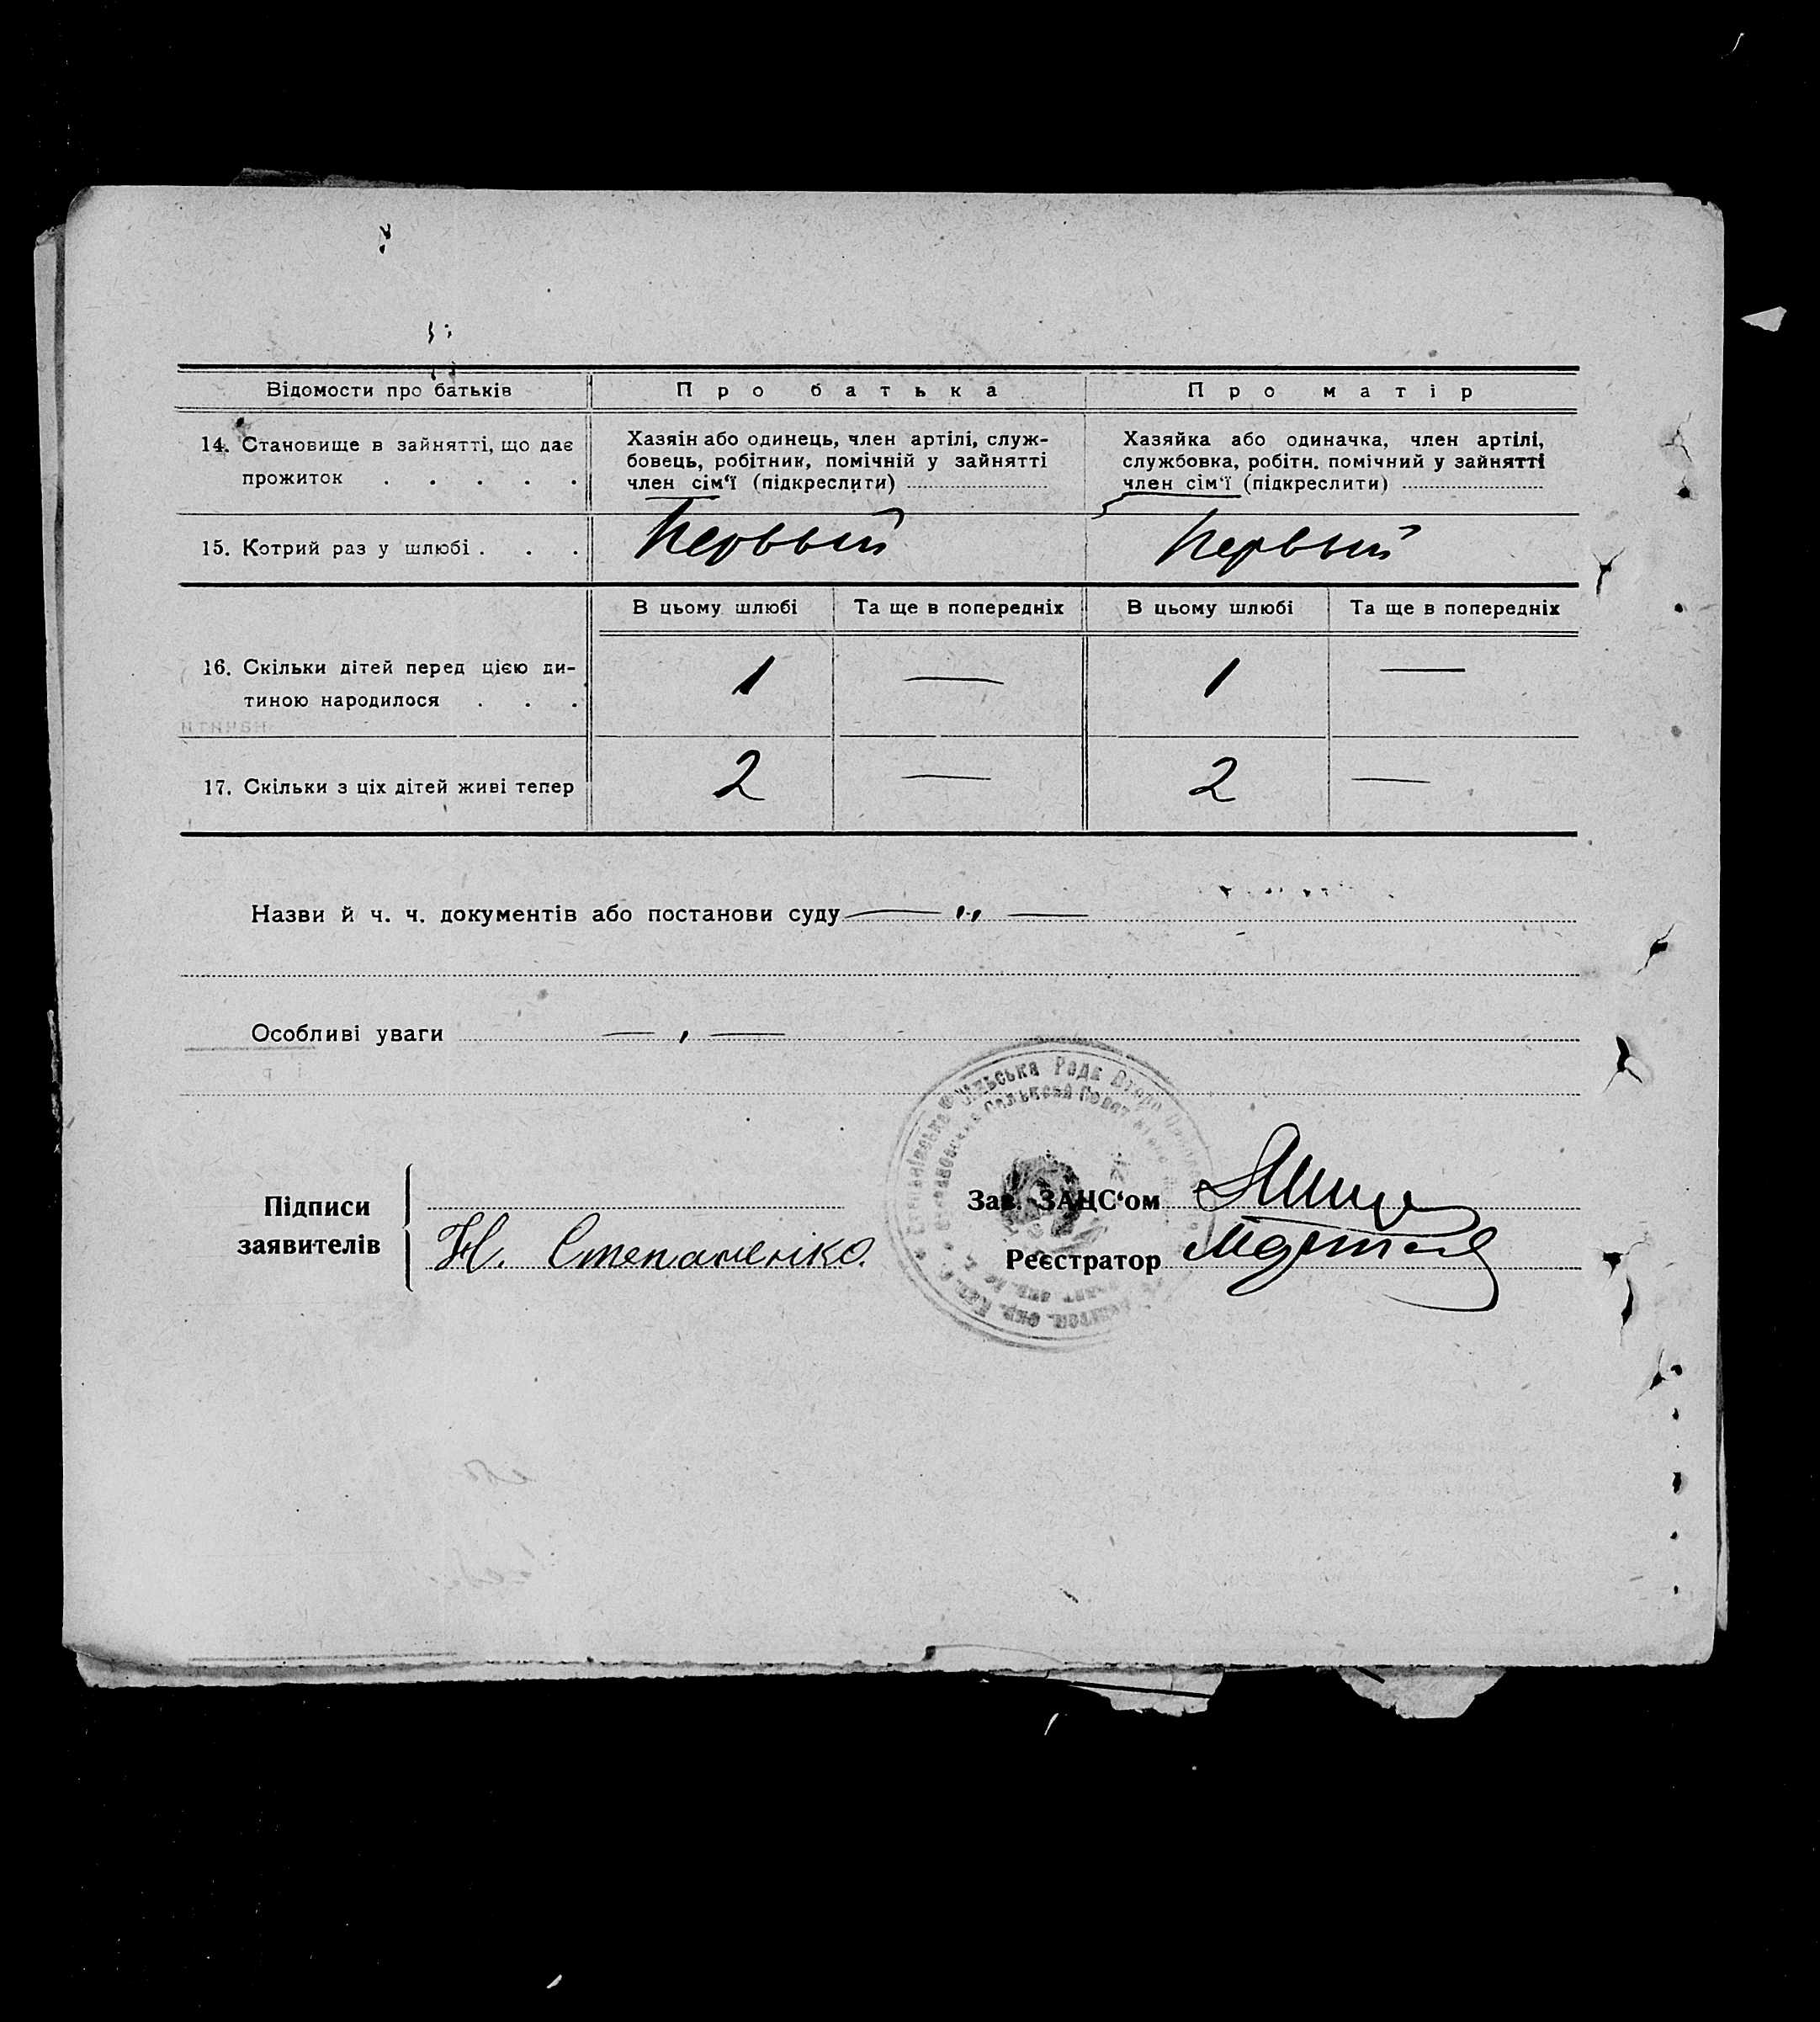 Відомости про батьків
Про батька
Про матір
14. Становище в зайнятті, що дає
прожиток . . . . .
Хазяін або одинець, член артілі, служ-
бовець, робітник, помічній у зайнятті
член сім'ї (підкреслити)
Хазяйка або одиначка, член артілі,
службовка, робітн. помічний у зайнятті
член сім'ї (підкреслити)
15. Котрий раз у шлюбі . . .
Первый
Первый
В цьому шлюбі
Та ще в попередніх
В цьому шлюбі
Та ще в попередніх
16. Скільки дітей перед цією ди-
тиною народилося . . .
1 —
1 —
17. Скільки з ціх дітей живі тепер
2 —
2 —
Назви й ч. ч. документів або постанови суду — „ —
Особливі уваги — , —
Підписи
заявителів
Н. Степаненко.
Зав. ЗАЦС'ом
Реєстратор
Рада